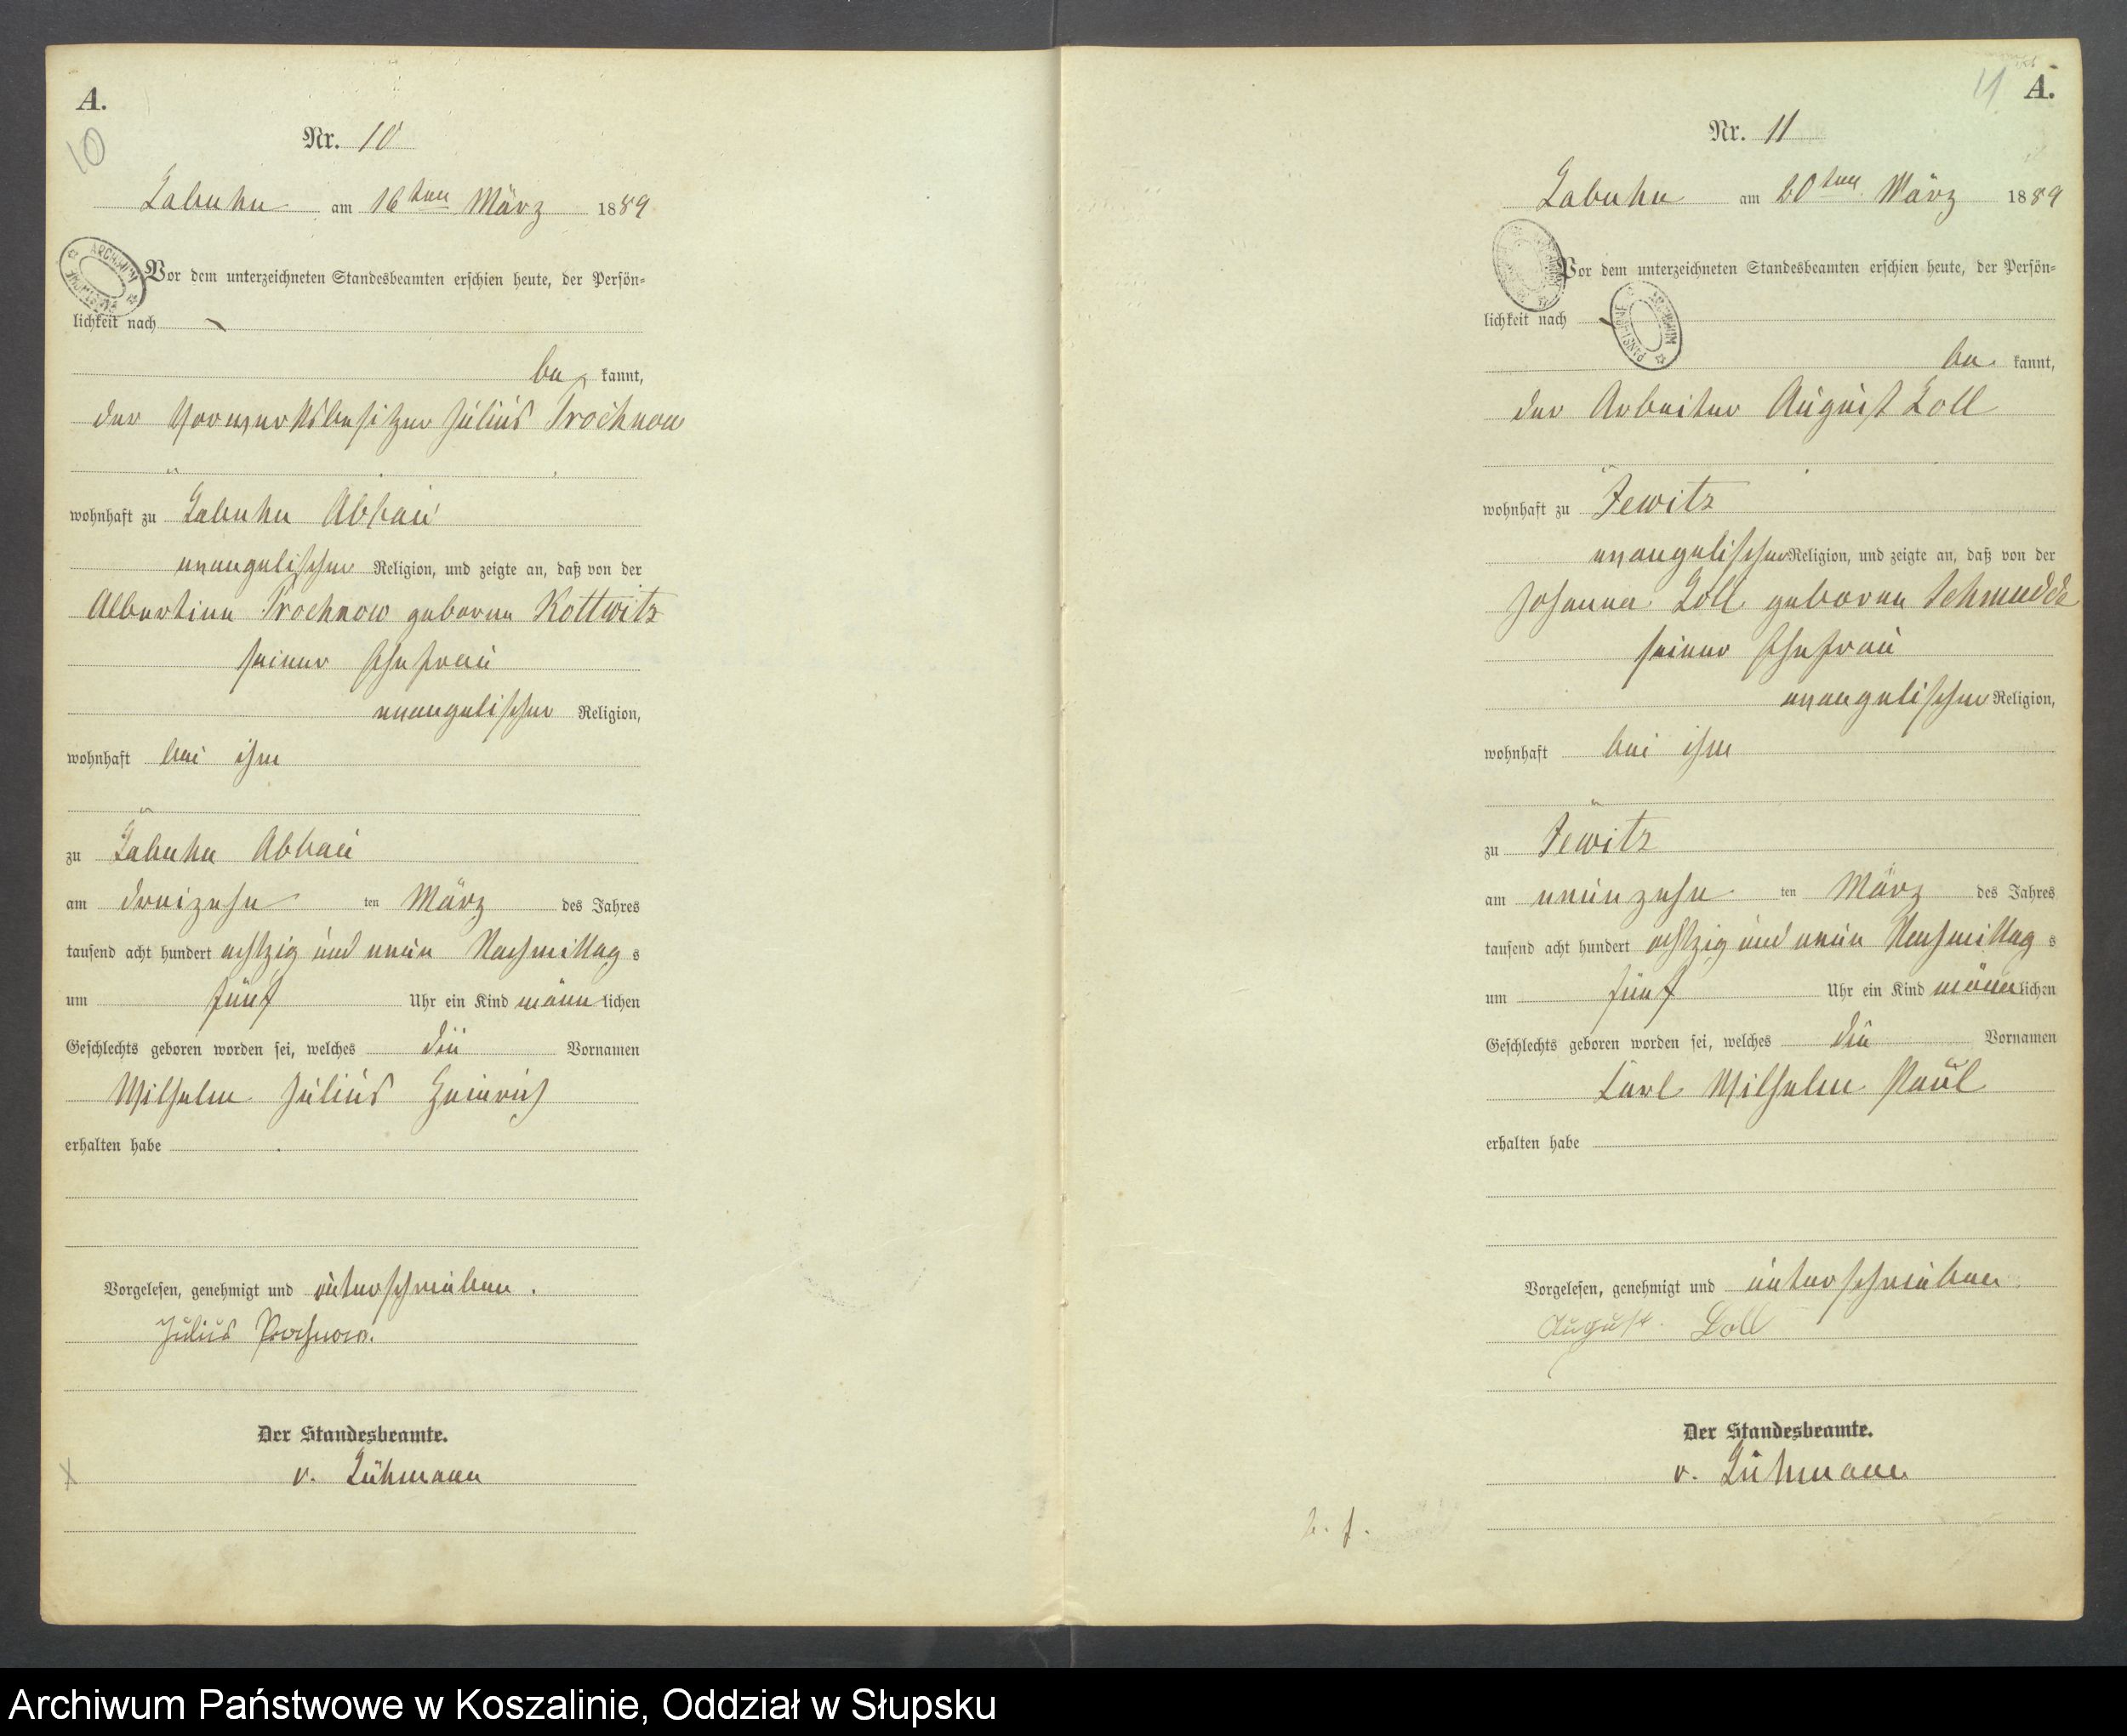 A.
10
Nr. 10
Labuhn am 16ten März 1889
Vor dem unterzeichneten Standesbeamten erschien heute, der Persön-
lichkeit nach
be kannt,
der Vorwerksbesitzer Julius Prochnow
wohnhaft zu Labuhn Abbau
evangelischer Religion, und zeigte an, daß von der
Albertine Prochnow geborene Kottwitz
seiner Ehefrau
evangelischer Religion,
wohnhaft bei ihm
zu Labuhn Abbau
am dreizehn ten März des Jahres
tausend acht hundert achtzig und neun Nachmittag s
um fünf Uhr ein Kind männ lichen
Geschlechts geboren worden sei, welches die Vornamen
Wilhelm Julius Heinrich
erhalten habe
Vorgelesen, genehmigt und unterschrieben.
Julius Prochnow.
Der Standesbeamte.
v. Lühmann
11 A.
Nr. 11
Labuhn am 20ten März 1889
Vor dem unterzeichneten Standesbeamten erschien heute, der Persön-
lichkeit nach
be kannt,
der Arbeiter August Loll
wohnhaft zu Jewitz
evangelischer Religion, und zeigte an, daß von der
Johanna Loll geborene Schmudde
seiner Ehefrau
evangelischer Religion,
wohnhaft bei ihm
zu Jewitz
am neunzehn ten März des Jahres
tausend acht hundert achtzig und neun Nachmittag s
um fünf Uhr ein Kind männ lichen
Geschlechts geboren worden sei, welches die Vornamen
Carl Wilhelm Paul
erhalten habe
Vorgelesen, genehmigt und unterschrieben
August Loll
Der Standesbeamte.
v. Lühmann
Archiwum Państwowe w Koszalinie, Oddział w Słupsku